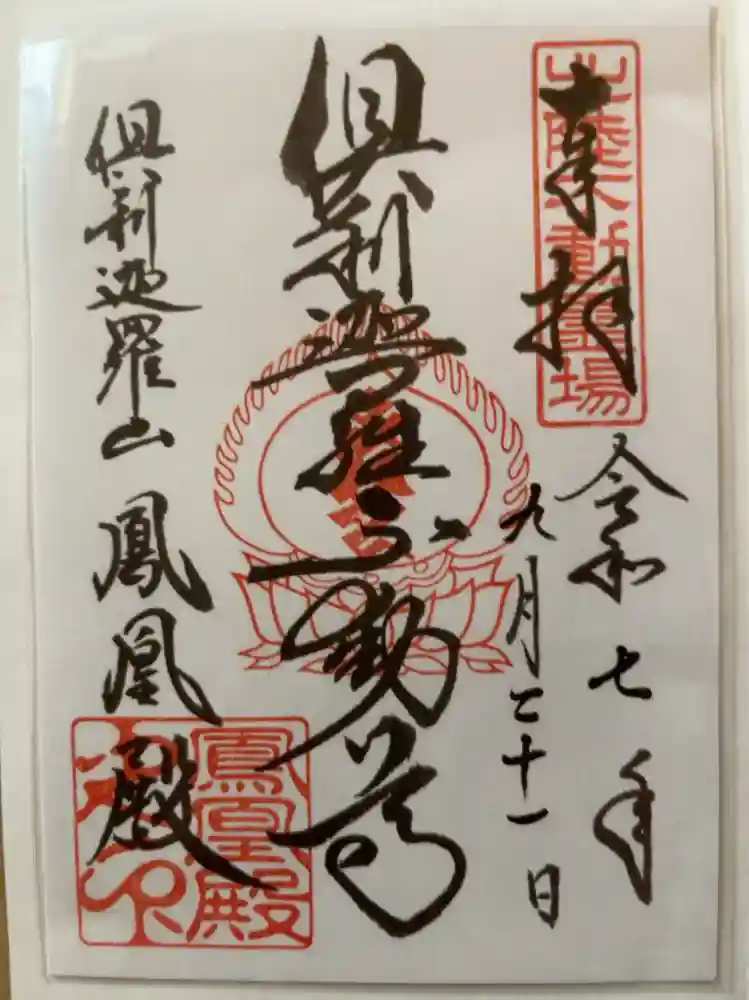 奉拝
北陸不動霊場
令和七年
九月二十一日
倶利迦羅不動尊
倶利迦羅山 鳳凰殿
鳳凰殿